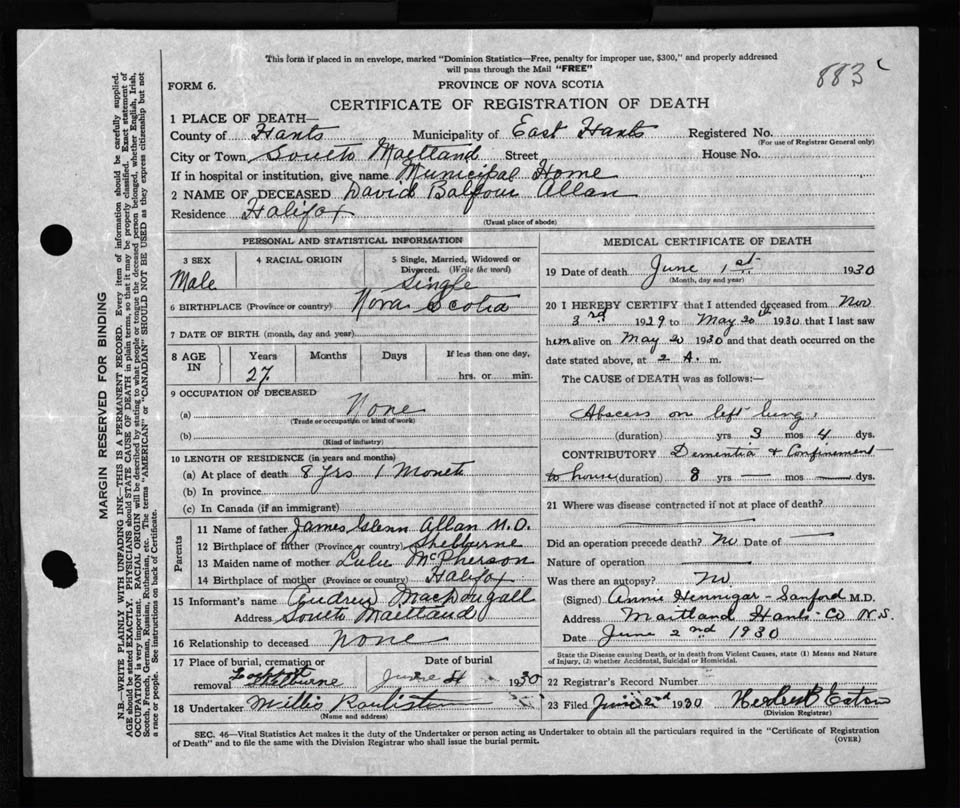 This form if placed in an envelope, marked "Dominion Statistics—Free, penalty for improper use, $300," and properly addressed
will pass through the Mail "FREE"
883
FORM 6.
PROVINCE OF NOVA SCOTIA
CERTIFICATE OF REGISTRATION OF DEATH
1 PLACE OF DEATH—
County of Hants Municipality of East Hants Registered No.
(For use of Registrar General only)
City or Town South Maitland Street House No.
If in hospital or institution, give name Municipal Home
2 NAME OF DECEASED David Balfour Allan
Residence Halifax
(Usual place of abode)
PERSONAL AND STATISTICAL INFORMATION
3 SEX
Male
4 RACIAL ORIGIN
5 Single, Married, Widowed or
Divorced. (Write the word)
Single
6 BIRTHPLACE (Province or country) Nova Scotia
7 DATE OF BIRTH (month, day and year)
8 AGE IN Years Months Days If less than one day,
27 hrs. or min.
9 OCCUPATION OF DECEASED
(a) None
(Trade or occupation or kind of work)
(b)
(Kind of industry)
10 LENGTH OF RESIDENCE (in years and months)
(a) At place of death 8 yrs 1 Month
(b) In province
(c) In Canada (if an immigrant)
Parents
11 Name of father James Glenn Allan M.D.
12 Birthplace of father (Province or country) Shelburne
13 Maiden name of mother Lulu McPherson
14 Birthplace of mother (Province or country) Halifax
15 Informant's name Andrew MacDougall
Address South Maitland
16 Relationship to deceased None
17 Place of burial, cremation or
removal Shelburne
Date of burial
June 1930
18 Undertaker Willis
(Name and address)
MEDICAL CERTIFICATE OF DEATH
19 Date of death June 1st 1930
(Month, day and year)
20 I HEREBY CERTIFY that I attended deceased from Nov
3rd 1929 to May 20th 1930 that I last saw
him alive on May 20 1930 and that death occurred on the
date stated above, at 2 A. m.
The CAUSE of DEATH was as follows:—
Abscess on left lung,
(duration) yrs 3 mos 4 dys.
CONTRIBUTORY Dementia & Confinement
to house (duration) 8 yrs mos dys.
21 Where was disease contracted if not at place of death?
Did an operation precede death? No Date of
Nature of operation
Was there an autopsy? No
(Signed) Annie Hennigar-Sanford M.D.
Address Maitland Hants Co N.S.
Date June 2nd 1930
State the Disease causing Death, or in death from Violent Causes, state (1) Means and Nature
of Injury, (2) whether Accidental, Suicidal or Homicidal.
22 Registrar's Record Number
23 Filed June 2nd 1930 Herbert Eaton
(Division Registrar)
SEC. 46—Vital Statistics Act makes it the duty of the Undertaker or person acting as Undertaker to obtain all the particulars required in the "Certificate of Registration
of Death" and to file the same with the Division Registrar who shall issue the burial permit.
(OVER)
MARGIN RESERVED FOR BINDING
N.B.—WRITE PLAINLY WITH UNFADING INK—THIS IS A PERMANENT RECORD. Every item of information should be carefully supplied.
AGE should be stated EXACTLY. PHYSICIANS should STATE CAUSE OF DEATH in plain terms, so that it may be properly classified. Exact statement of
OCCUPATION is very important. RACIAL ORIGIN will be described by stating to what people or tongue the deceased person belonged, whether English, Irish,
Scotch, French, German, Russian, Ruthenian, etc. The terms "AMERICAN" or "CANADIAN" SHOULD NOT BE USED as they express citizenship but not
a race or people. See instructions on back of Certificate.